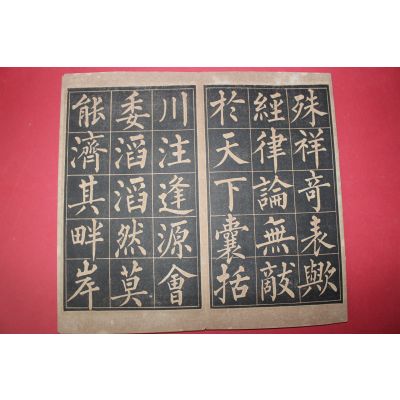 殊祥竒表歟
經律論無敵
於天下囊括
川注逢源會
委滔滔然莫
能濟其畔岸